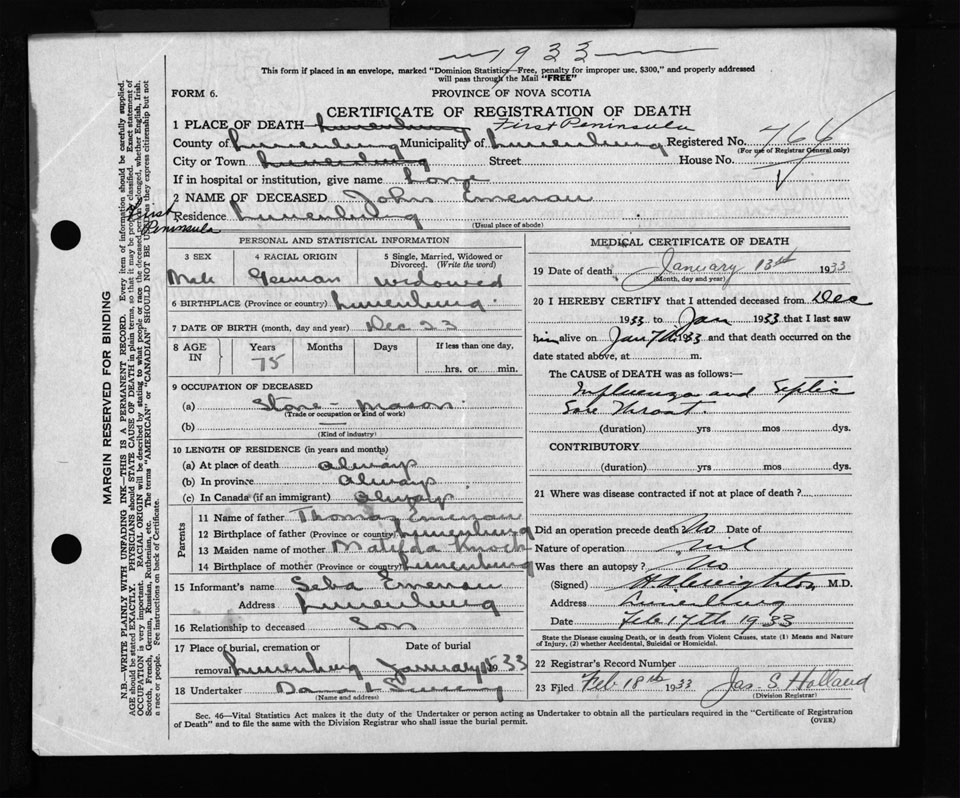 1933
This form if placed in an envelope, marked "Dominion Statistics—Free, penalty for improper use, $300," and properly addressed
will pass through the Mail "FREE"
FORM 6. PROVINCE OF NOVA SCOTIA
CERTIFICATE OF REGISTRATION OF DEATH
1 PLACE OF DEATH Lunenburg First Peninsula
County of Lunenburg Municipality of Lunenburg Registered No. 764
(For use of Registrar General only)
City or Town Lunenburg Street House No.
If in hospital or institution, give name home
2 NAME OF DECEASED John Emenau
First Peninsula
Residence Lunenburg
(Usual place of abode)
PERSONAL AND STATISTICAL INFORMATION
3 SEX 4 RACIAL ORIGIN 5 Single, Married, Widowed or
Divorced. (Write the word)
Male German widowed
6 BIRTHPLACE (Province or country) Lunenburg
7 DATE OF BIRTH (month, day and year) Dec 23
8 AGE IN Years Months Days If less than one day,
75
hrs. or min.
9 OCCUPATION OF DECEASED
(a) Stone-mason
(Trade or occupation or kind of work)
(b) —
(Kind of industry)
10 LENGTH OF RESIDENCE (in years and months)
(a) At place of death always
(b) In province always
(c) In Canada (if an immigrant) always
Parents
11 Name of father Thomas Emenau
12 Birthplace of father (Province or country) Lunenburg
13 Maiden name of mother Matilda Knock
14 Birthplace of mother (Province or country) Lunenburg
15 Informant's name Seba Emenau
Address Lunenburg
16 Relationship to deceased Son
17 Place of burial, cremation or Date of burial
removal Lunenburg January 15 1933
18 Undertaker
(Name and address)
MEDICAL CERTIFICATE OF DEATH
19 Date of death January 13th 1933
(Month, day and year)
20 I HEREBY CERTIFY that I attended deceased from Dec
1933 to Jan 1933 that I last saw
him alive on Jan 7th 1933 and that death occurred on the
date stated above, at m.
The CAUSE of DEATH was as follows:—
Influenza and Septic
Sore Throat.
(duration) yrs mos dys.
CONTRIBUTORY
(duration) yrs mos dys.
21 Where was disease contracted if not at place of death?
Did an operation precede death No Date of
Nature of operation nil
Was there an autopsy? No
(Signed) Creighton M.D.
Address Lunenburg
Date Feb 17th 1933
State the Disease causing Death, or in death from Violent Causes, state (1) Means and Nature
of Injury, (2) whether Accidental, Suicidal or Homicidal.
22 Registrar's Record Number
23 Filed Feb 18th 1933 Jas. S. Holland
(Division Registrar)
Sec. 46—Vital Statistics Act makes it the duty of the Undertaker or person acting as Undertaker to obtain all the particulars required in the "Certificate of Registration
of Death" and to file the same with the Division Registrar who shall issue the burial permit. (OVER)
MARGIN RESERVED FOR BINDING
N.B.—WRITE PLAINLY WITH UNFADING INK—THIS IS A PERMANENT RECORD. Every item of information should be carefully supplied.
AGE should be stated EXACTLY. PHYSICIANS should STATE CAUSE OF DEATH in plain terms, so that it may be properly classified. Exact statement of
OCCUPATION is very important. RACIAL ORIGIN will be described by stating to what people or race the deceased person belonged, whether English, Irish,
Scotch, French, German, Russian, Ruthenian, etc. The terms "AMERICAN" or "CANADIAN" SHOULD NOT BE USED as they express citizenship but not
a race or people. Fee instructions on back of Certificate.